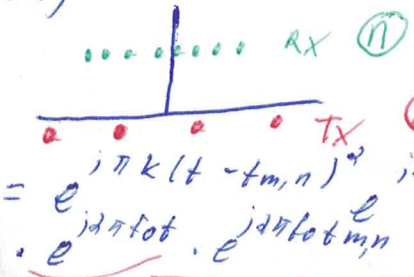 RX n
TX
= e^{jπk(t-tm,n)^2} e^{j
· e^{j2πfot} · e^{j2πfotm,n}